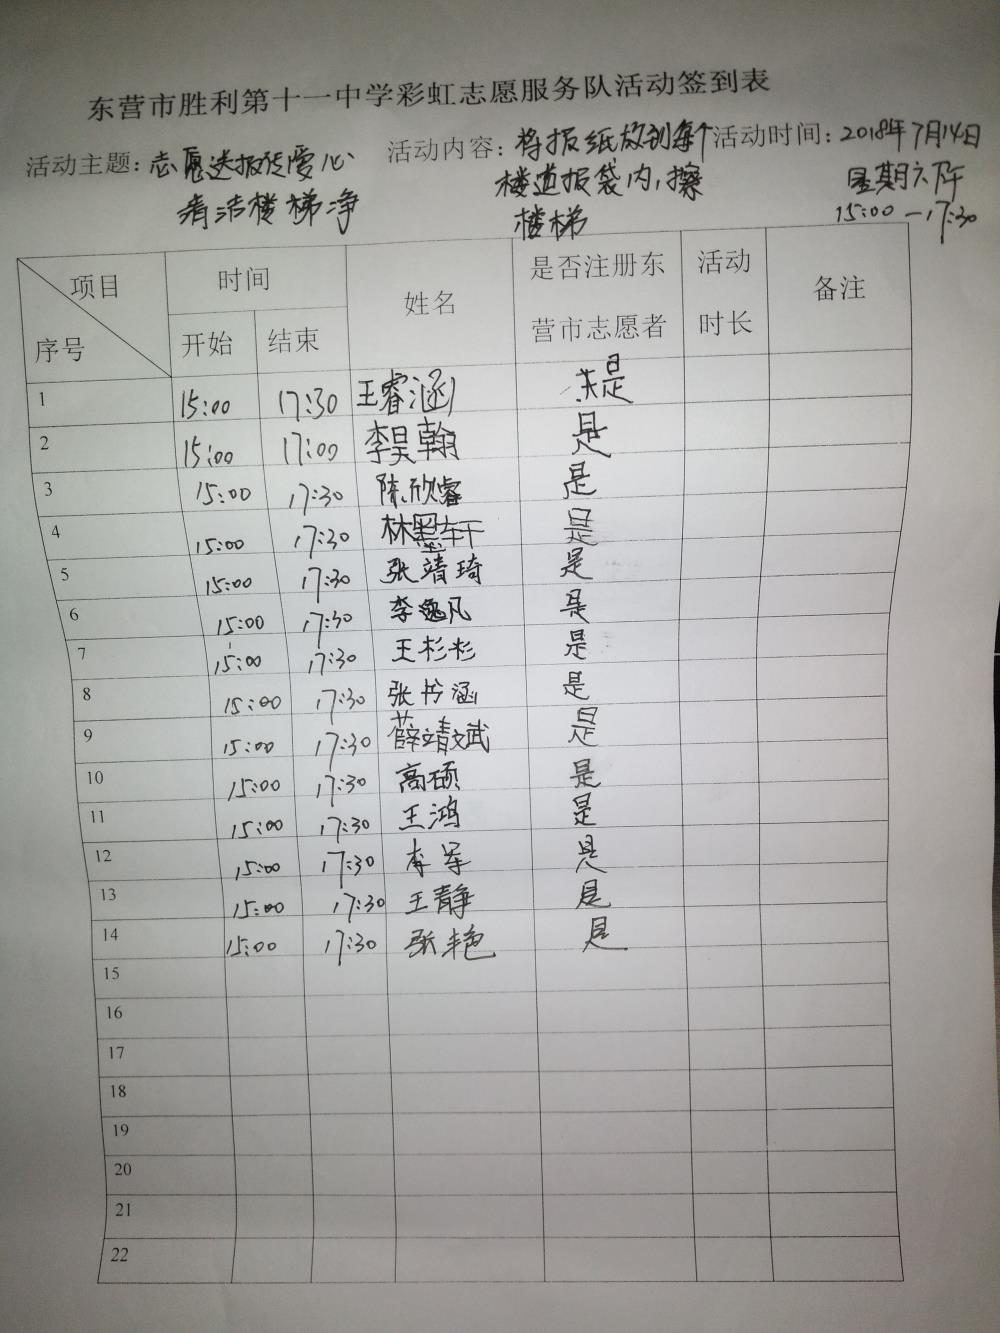 东营市胜利第十一中学彩虹志愿服务队活动签到表
活动主题：志愿送报促爱心 活动内容：将报纸放到每个 活动时间：2018年7月14日
清洁楼梯净 楼道报袋内，擦 星期六下午
楼梯 15:00—17:30
项目 时间 姓名 是否注册东 活动 备注
序号 开始 结束 营市志愿者 时长
1 15:00 17:30 王睿涵 是
2 15:00 17:00 李昊翰 是
3 15:00 17:30 陈欣睿 是
4 15:00 17:30 林墨轩 是
5 15:00 17:30 张靖琦 是
6 15:00 17:30 李逸凡 是
7 15:00 17:30 王杉杉 是
8 15:00 17:30 张书涵 是
9 15:00 17:30 薛靖斌 是
10 15:00 17:30 高硕 是
11 15:00 17:30 王鸿 是
12 15:00 17:30 李军 是
13 15:00 17:30 王静 是
14 15:00 17:30 张艳 是
15
16
17
18
19
20
21
22